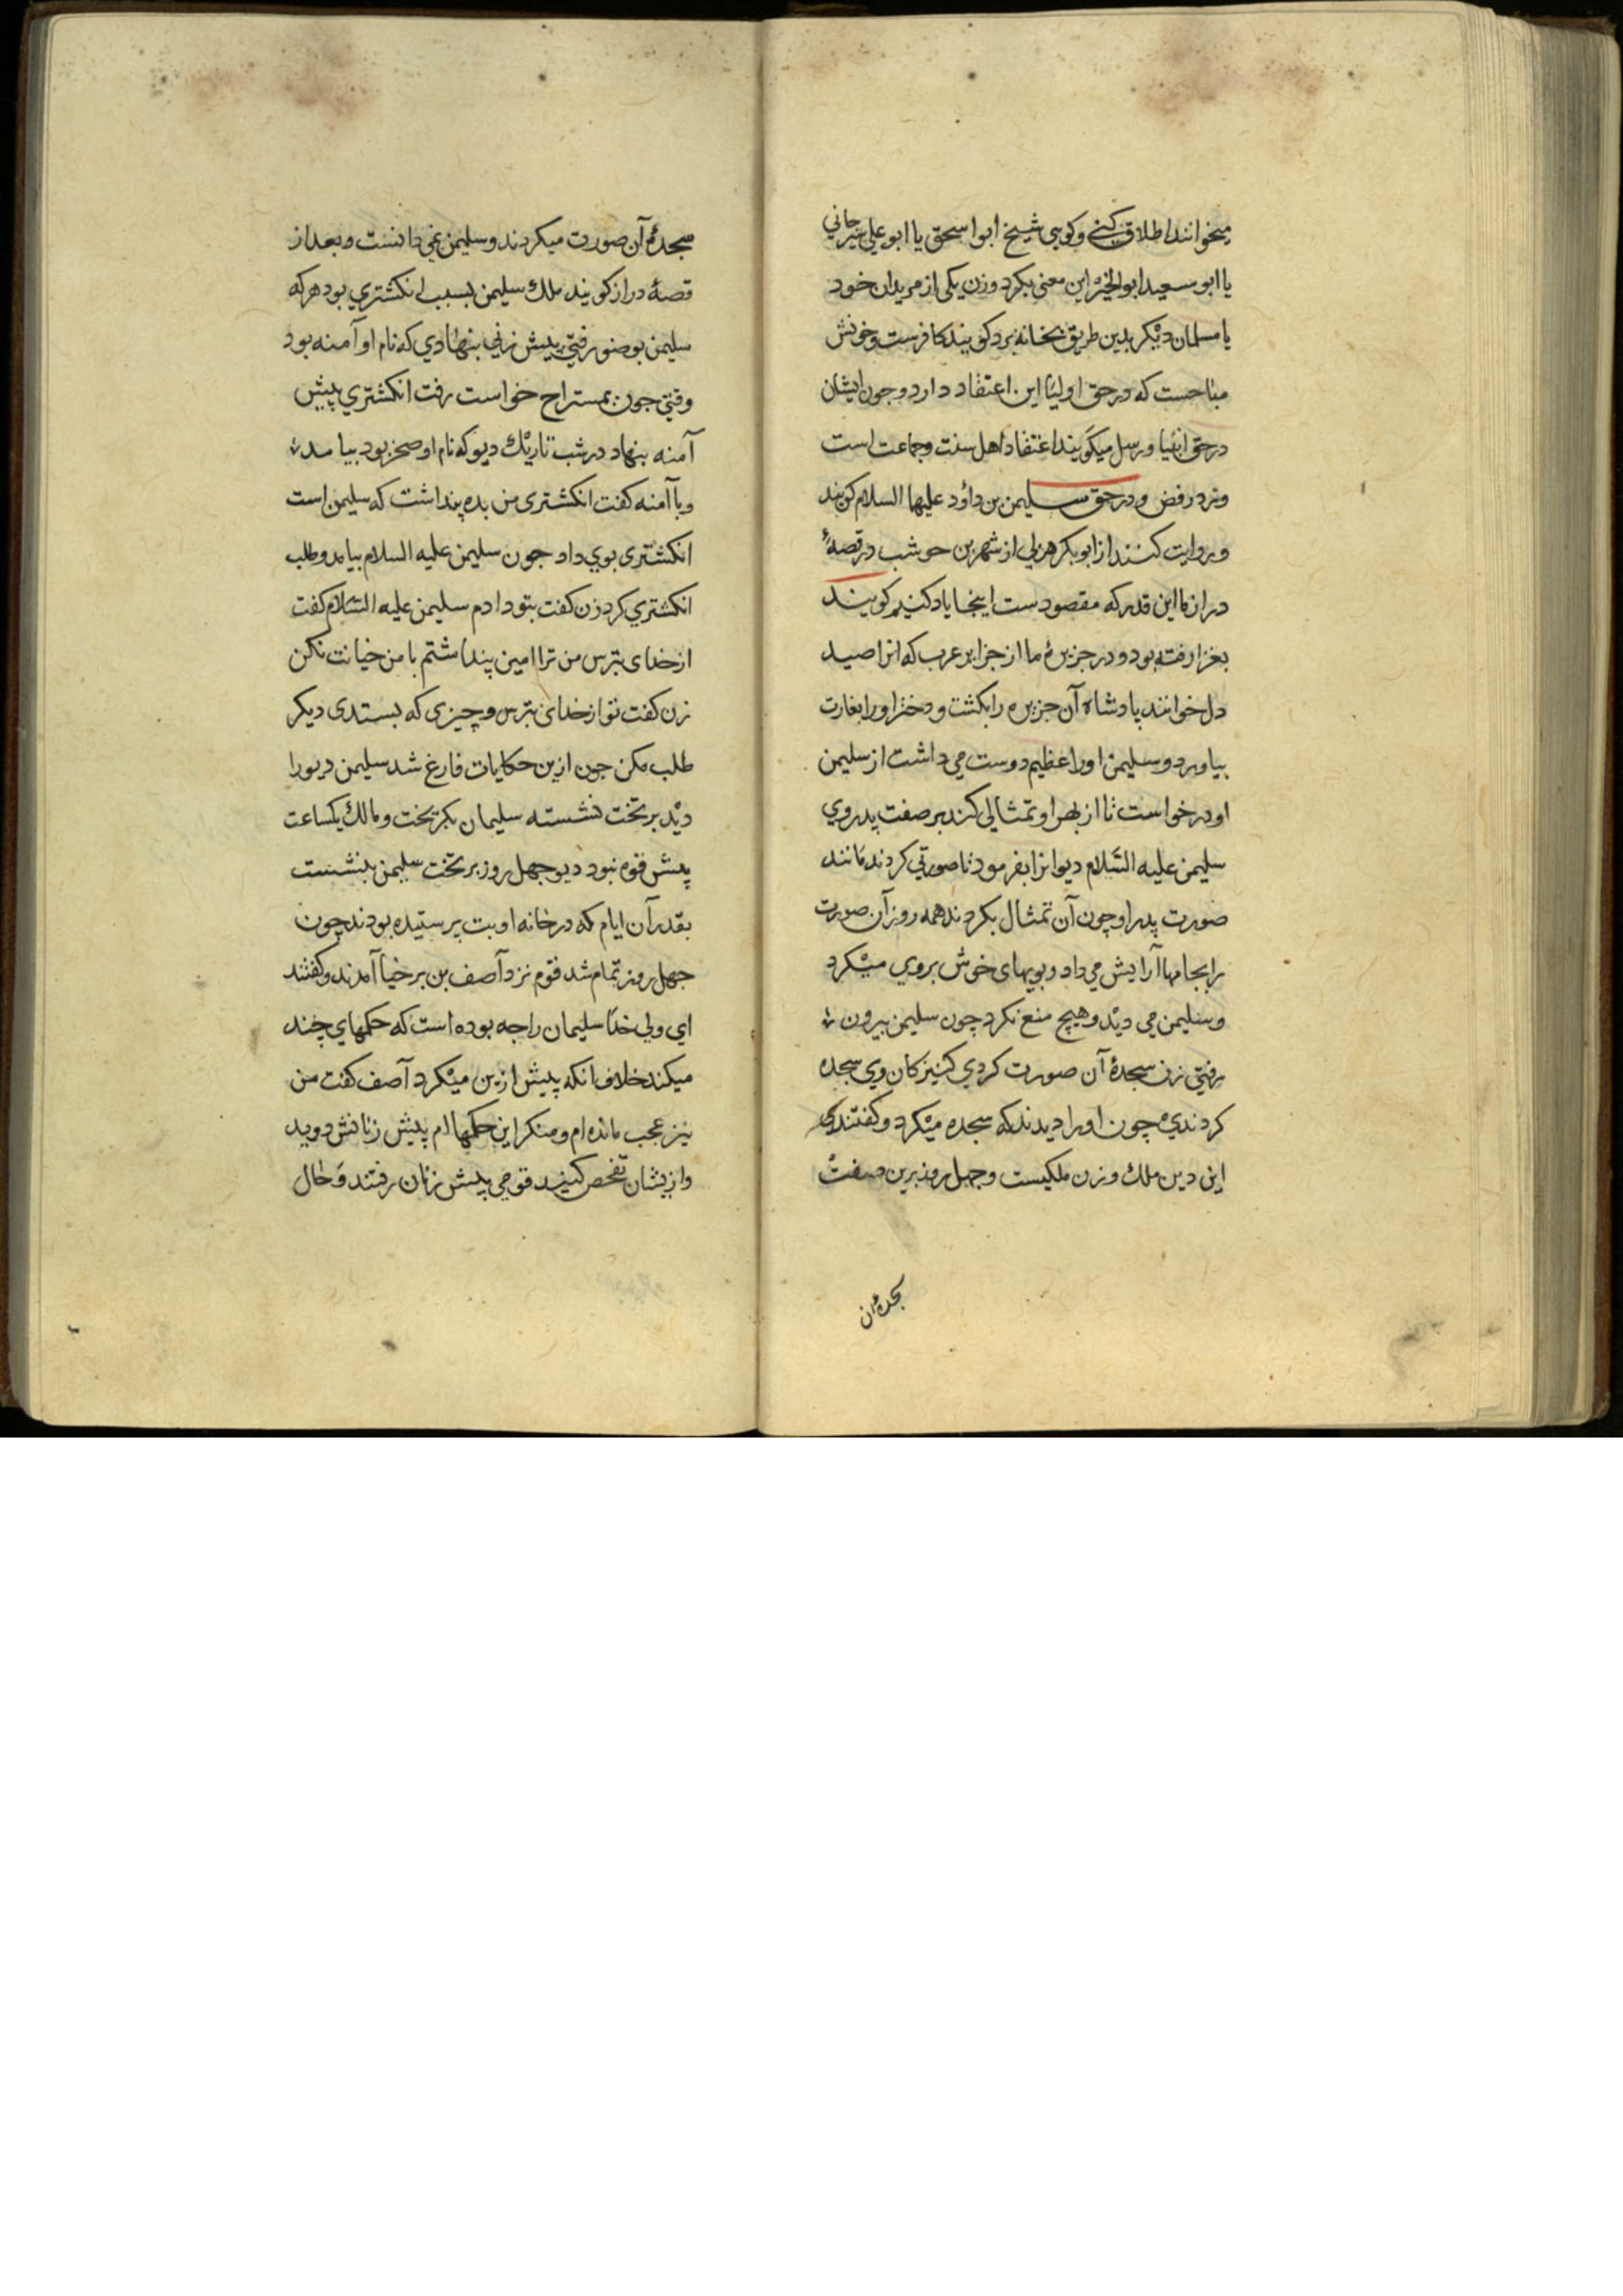 میخوانند اطلاق کنے و کویی شیخ ابو اسحق یا ابو علی سیرجانی
یا ابو سعید ابو الخیر این معنی بکرد وزن یکی از مریدان خود
یا مسلمان دیکر بدین طریق بخانه برد کویند کافرست وخونش
مباحست که در حق اولیا این اعتقاد دارد وجون ایشان
در حق انبیا ورسل میکویند اعتقاد اهل سنت وجماعت است
ونرد رفض ودر حق سلیمن بن داؤد علیها السلام کویند
وروایت کنند از ابو بکر هزلی از شهر بن حوشب در قصهٔ
دراز ما این قدر که مقصودست اینجا یاد کنیم کویند
بغزا رفته بود ودر جزیرهٔ ما از جزایر عرب که انرا صید
دل خوانند پادشاه آن جزیره را بکشت ودختر اورا بغارت
بیاورد وسلیمن اورا عظیم دوست می داشت از سلیمن
او درخواست تا از بهر او تمثالی کند بر صفت پدر وی
سلیمن علیه السلام دیوانرا بفرمود تا صورتی کردند مانند
صورت پدر او چون آن تمثال بکردند همه روز آن صورت
را بجامها آرایش می داد وبویهای خوش بروی میکرد
وسلیمن می دید وهیچ منع نکرد چون سلیمن بیرون
رفتی زن سجدهٔ آن صورت کردی کنیزکان وی سجده
کردندی چون اورا دیدند که سجده میکرد وکفتندی
این دین ملک وزن ملکیست وجهل روز برین صفت
سجدهٔ آن
سجدهٔ آن صورت میکردند وسلیمن نمی دانست وبعد از
قصهٔ دراز کویند ملک سلیمن بسبب انکشتری بود هر که
سلیمن بوضو رفتی پیش زنی بنهادی که نام او آمنه بود
وقتی جون بمستراح خواست رفت انکشتری پیش
آمنه بنهاد در شب تاریک دیو که نام او صخر بود بیامد
وبا آمنه کفت انکشتری من بده پنداشت که سلیمن است
انکشتری بوی داد جون سلیمن علیه السلام بیامد وطلب
انکشتری کرد زن کفت بتو دادم سلیمن علیه السلام کفت
از خدای بترس من ترا امین پنداشتم با من خیانت نکن
زن کفت تو از خدای بترس وچیزی که بستدی دیکر
طلب مکن جون ازین حکایات فارغ شد سلیمن دیو را
دید بر تخت نشسته سلیمان بکریخت ومالک یکساعت
پیش قوم نبود دیو جهل روز بر تخت سلیمن بنشست
بقدر آن ایام که در خانه او بت پرستیده بودند چون
جهل روز تمام شد قوم نزد آصف بن برخیا آمدند وکفتند
ای ولی خدا سلیمان را جه بوده است که حکمهای چند
میکند خلاف انکه پیش ازین میکرد آصف کفت من
نیز عجب مانده ام ومنکر این حکمها ام پیش زنانش روید
وازیشان تفحص کنید قومی پیش زنان رفتند وحال